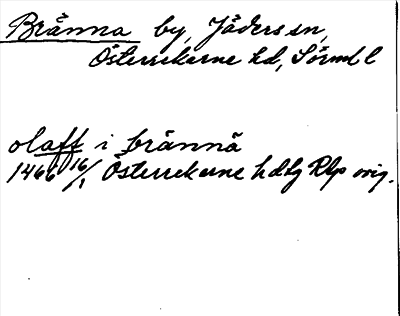 Bränna by, Jäders sn,
Österrekarne hd, Sörml l
olaff i brännä
1466 16/1 Österrekarne hdtg RAp orig.